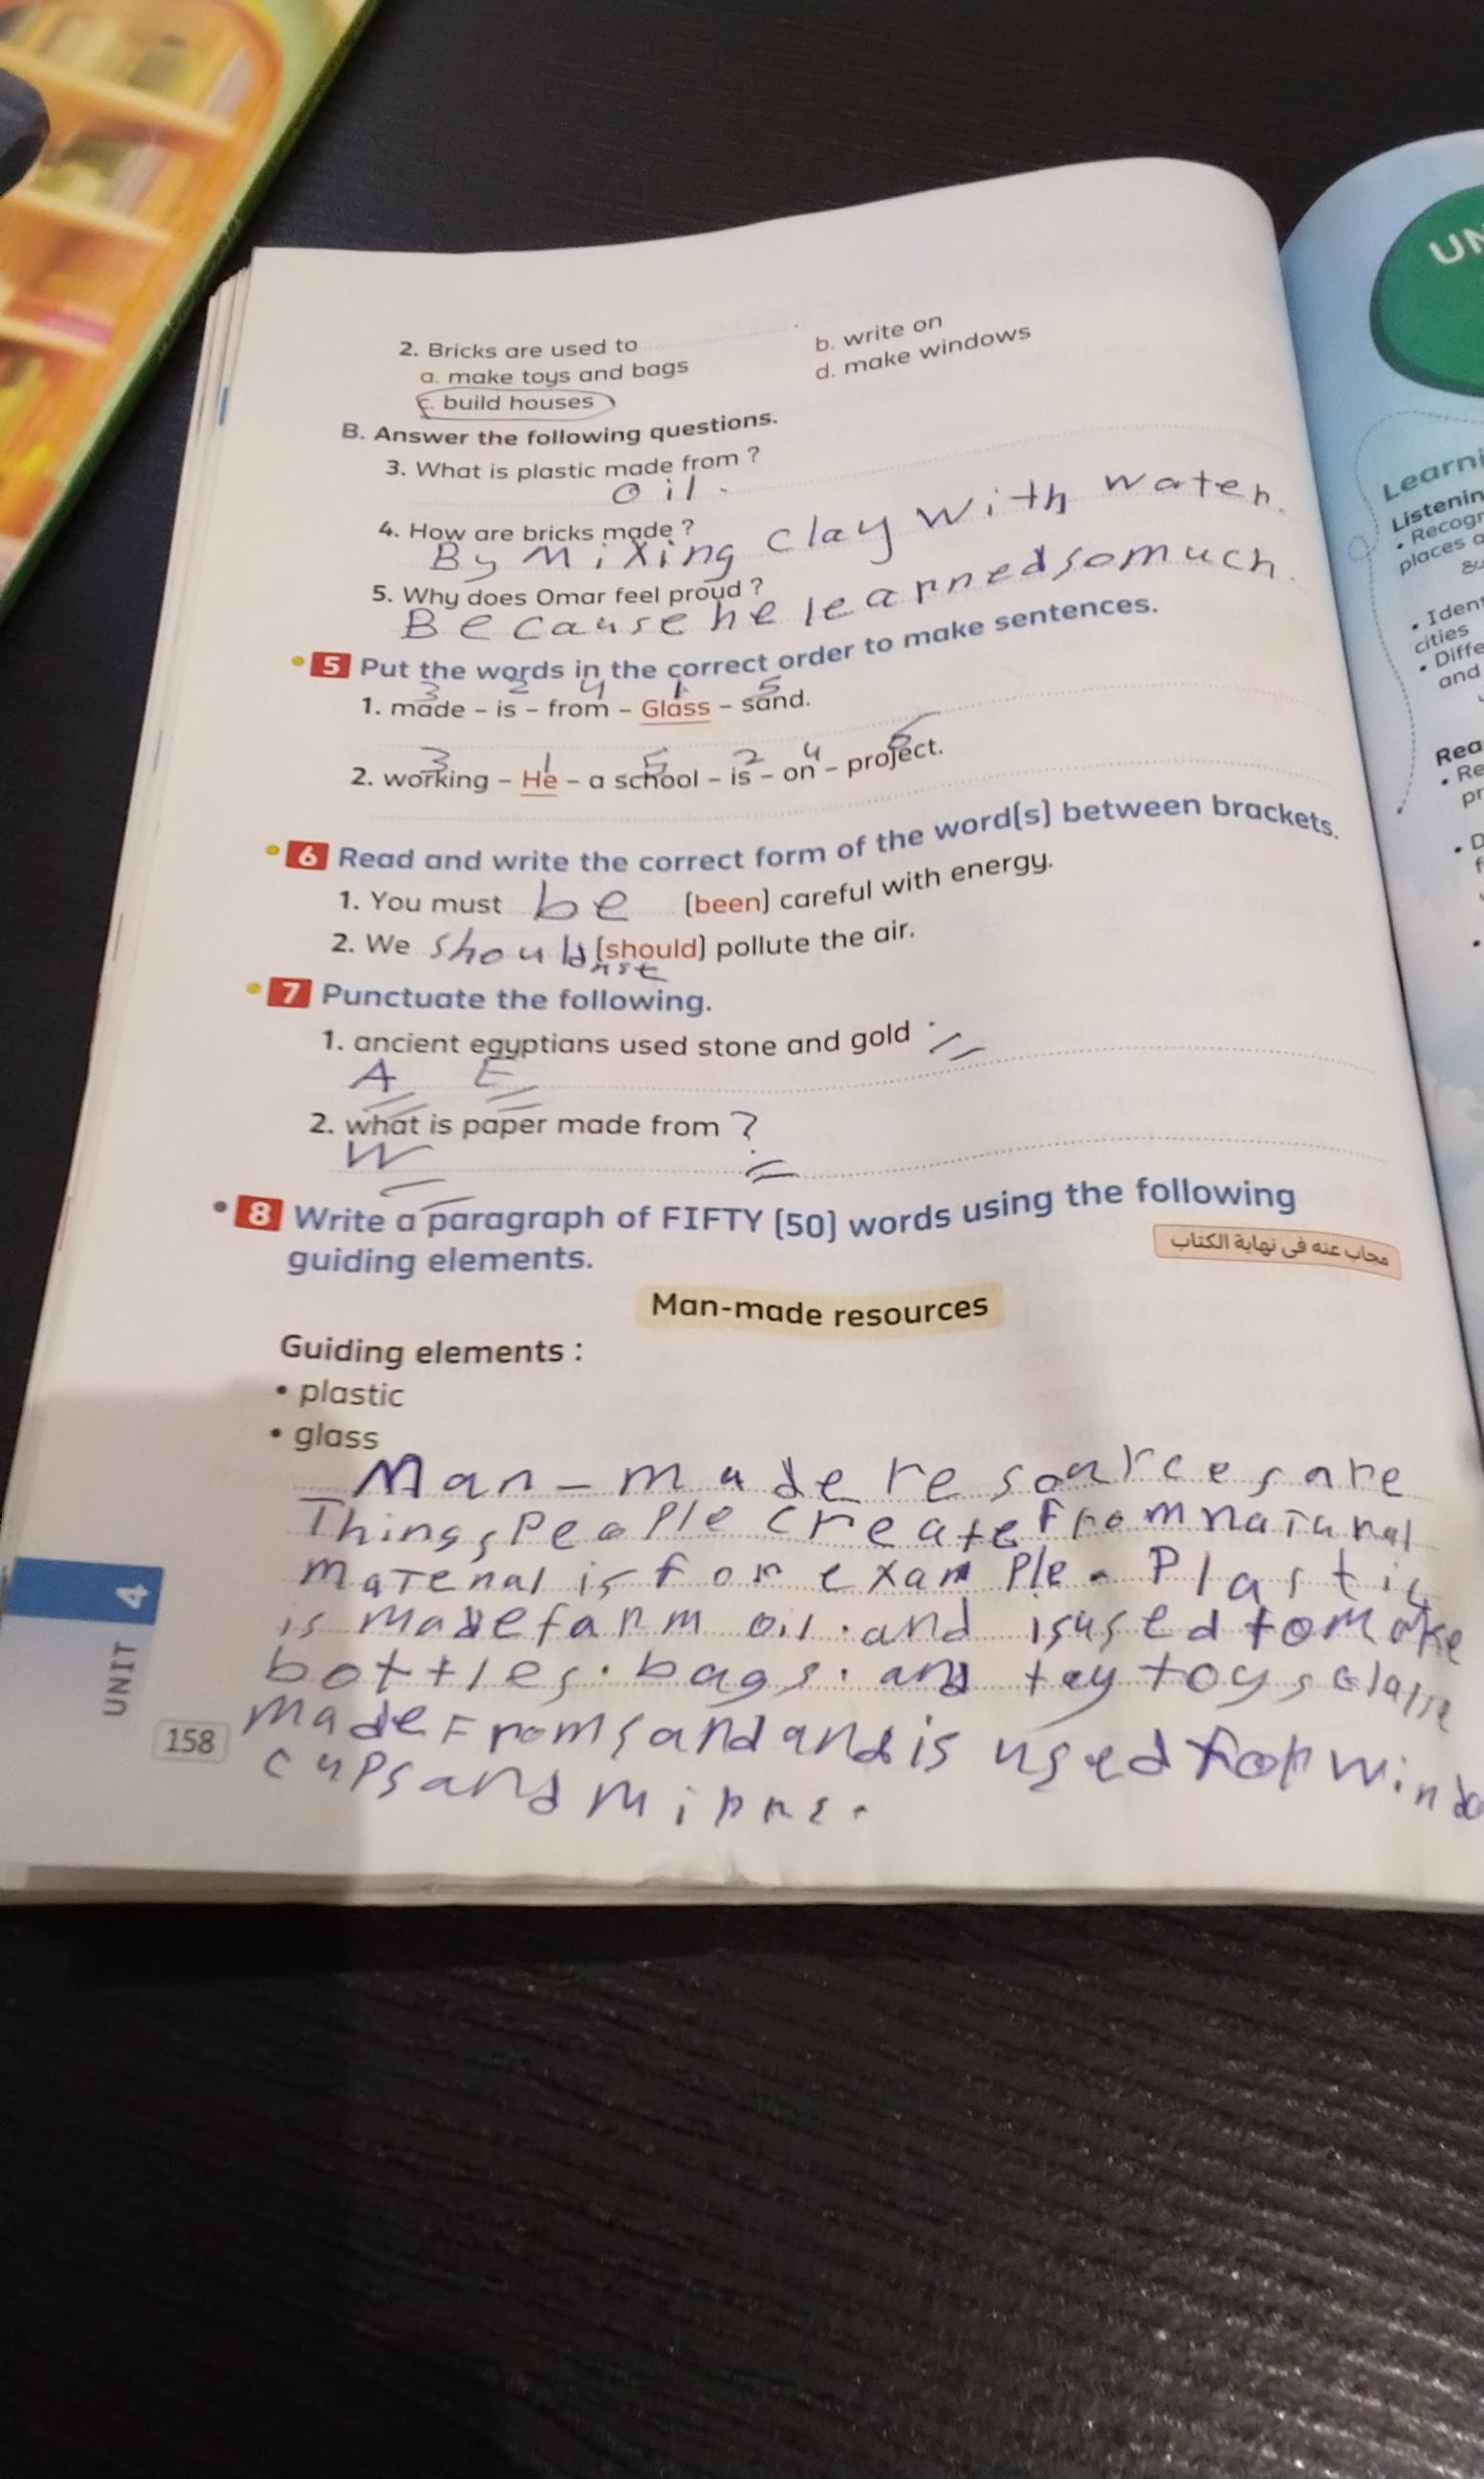 2. Bricks are used to
b. write on
a. make toys and bags
d. make windows
c. build houses
B. Answer the following questions.
3. What is plastic made from ?
oil.
4. How are bricks made ?
By Mixing clay with water.
5. Why does Omar feel proud ?
Because he learned so much.
5 Put the words in the correct order to make sentences.
3 2 4 1 5
1. made – is – from – Glass – sand.
3 1 5 2 4 6
2. working – He – a school – is – on – project.
6 Read and write the correct form of the word(s) between brackets.
1. You must be (been) careful with energy.
2. We should (should) pollute the air.
7 Punctuate the following.
1. ancient egyptians used stone and gold .
A E
2. what is paper made from ?
W
8 Write a paragraph of FIFTY (50) words using the following
guiding elements.
مجاب عنه فى نهاية الكتاب
Man-made resources
Guiding elements :
• plastic
• glass
Man-made resources are
Things People create From natural
for example. Plastic
is made oil. and is used to make
bottles. bags. and toys
made From sand and is used for
cups and
UNIT 4
158
UN
Learni
Listenin
• Recogn
places a
• Ident
cities
• Diffe
and
Rea
• Re
pr
• D